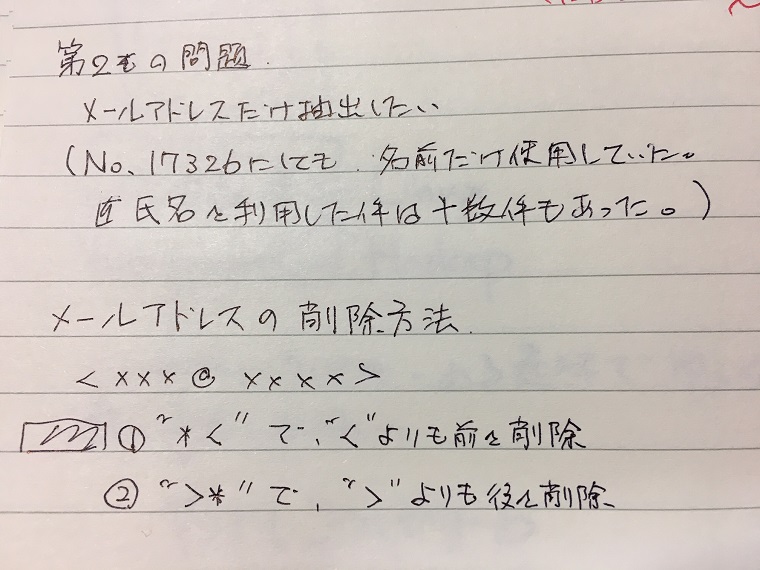 第2の問題.
メールアドレスだけ抽出したい
(No.17326にしても、名前だけ使用していた。
氏名を利用した件は十数件もあった。)
メールアドレスの削除方法.
<xxx@xxxx>
① "*<"で、"<"よりも前を削除
② ">*"で、">"よりも後を削除